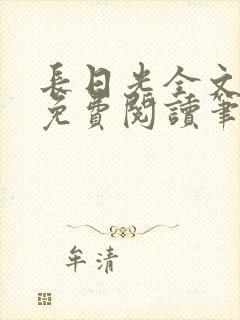 長日光全文
免費閱讀筆
牟清